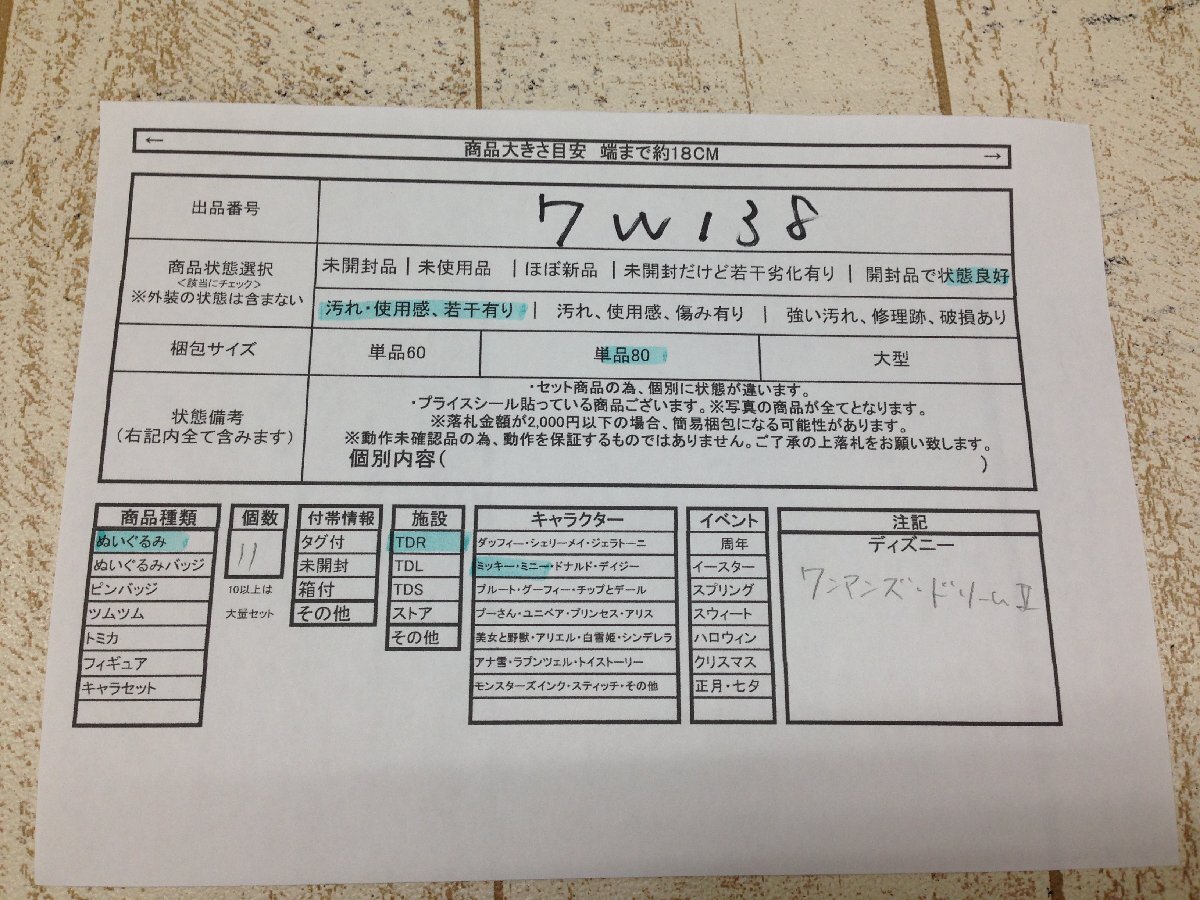 ← 商品大きさ目安 端まで約18CM →
出品番号 7W138
商品状態選択
<該当にチェック>
※外装の状態は含まない
未開封品 | 未使用品 | ほぼ新品 | 未開封だけど若干劣化有り | 開封品で状態良好
汚れ・使用感、若干有り | 汚れ、使用感、傷み有り | 強い汚れ、修理跡、破損あり
梱包サイズ 単品60 単品80 大型
状態備考
(右記内全て含みます)
・セット商品の為、個別に状態が違います。
・プライスシール貼っている商品ございます。※写真の商品が全てとなります。
※落札金額が2,000円以下の場合、簡易梱包になる可能性があります。
※動作未確認品の為、動作を保証するものではありません。ご了承の上落札をお願い致します。
個別内容( )
商品種類
ぬいぐるみ
ぬいぐるみバッジ
ピンバッジ
ツムツム
トミカ
フィギュア
キャラセット
個数
11
10以上は
大量セット
付帯情報
タグ付
未開封
箱付
その他
施設
TDR
TDL
TDS
ストア
その他
キャラクター
ダッフィー・シェリーメイ・ジェラトーニ
ミッキー・ミニー・ドナルド・デイジー
プルート・グーフィー・チップとデール
プーさん・ユニベア・プリンセス・アリス
美女と野獣・アリエル・白雪姫・シンデレラ
アナ雪・ラプンツェル・トイストーリー
モンスターズインク・スティッチ・その他
イベント
周年
イースター
スプリング
スウィート
ハロウィン
クリスマス
正月・七夕
注記
ディズニー
ワンマンズ・ドリームⅡ